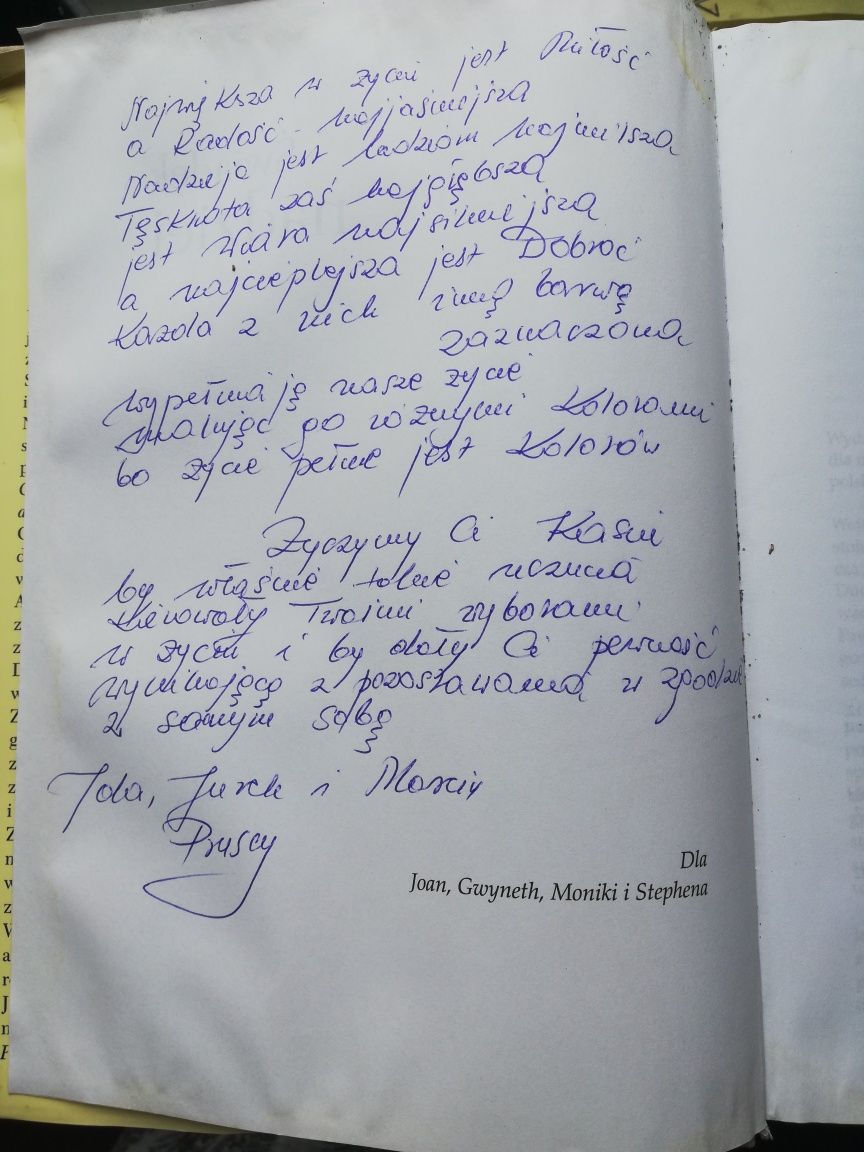 Największa w życiu jest Miłość
a Radość - najjaśniejsza
Nadzieja jest ludziom najmilsza
Tęsknota zaś najgłębsza
jest Wiara najsilniejsza
a najcieplejsza jest Dobroć
Każda z nich inną barwą
zaznaczona
wypełniają nasze życie
malując go różnymi kolorami
bo życie pełne jest kolorów
Życzymy Ci Kasiu
by właśnie takie uczucia
kierowały Twoimi wyborami
w życiu i by dały Ci pewność
wynikającą z pozostawania w zgodzie
z samym sobą
Jola, Jurek i Marcin
Pruscy
Dla
Joan, Gwyneth, Moniki i Stephena